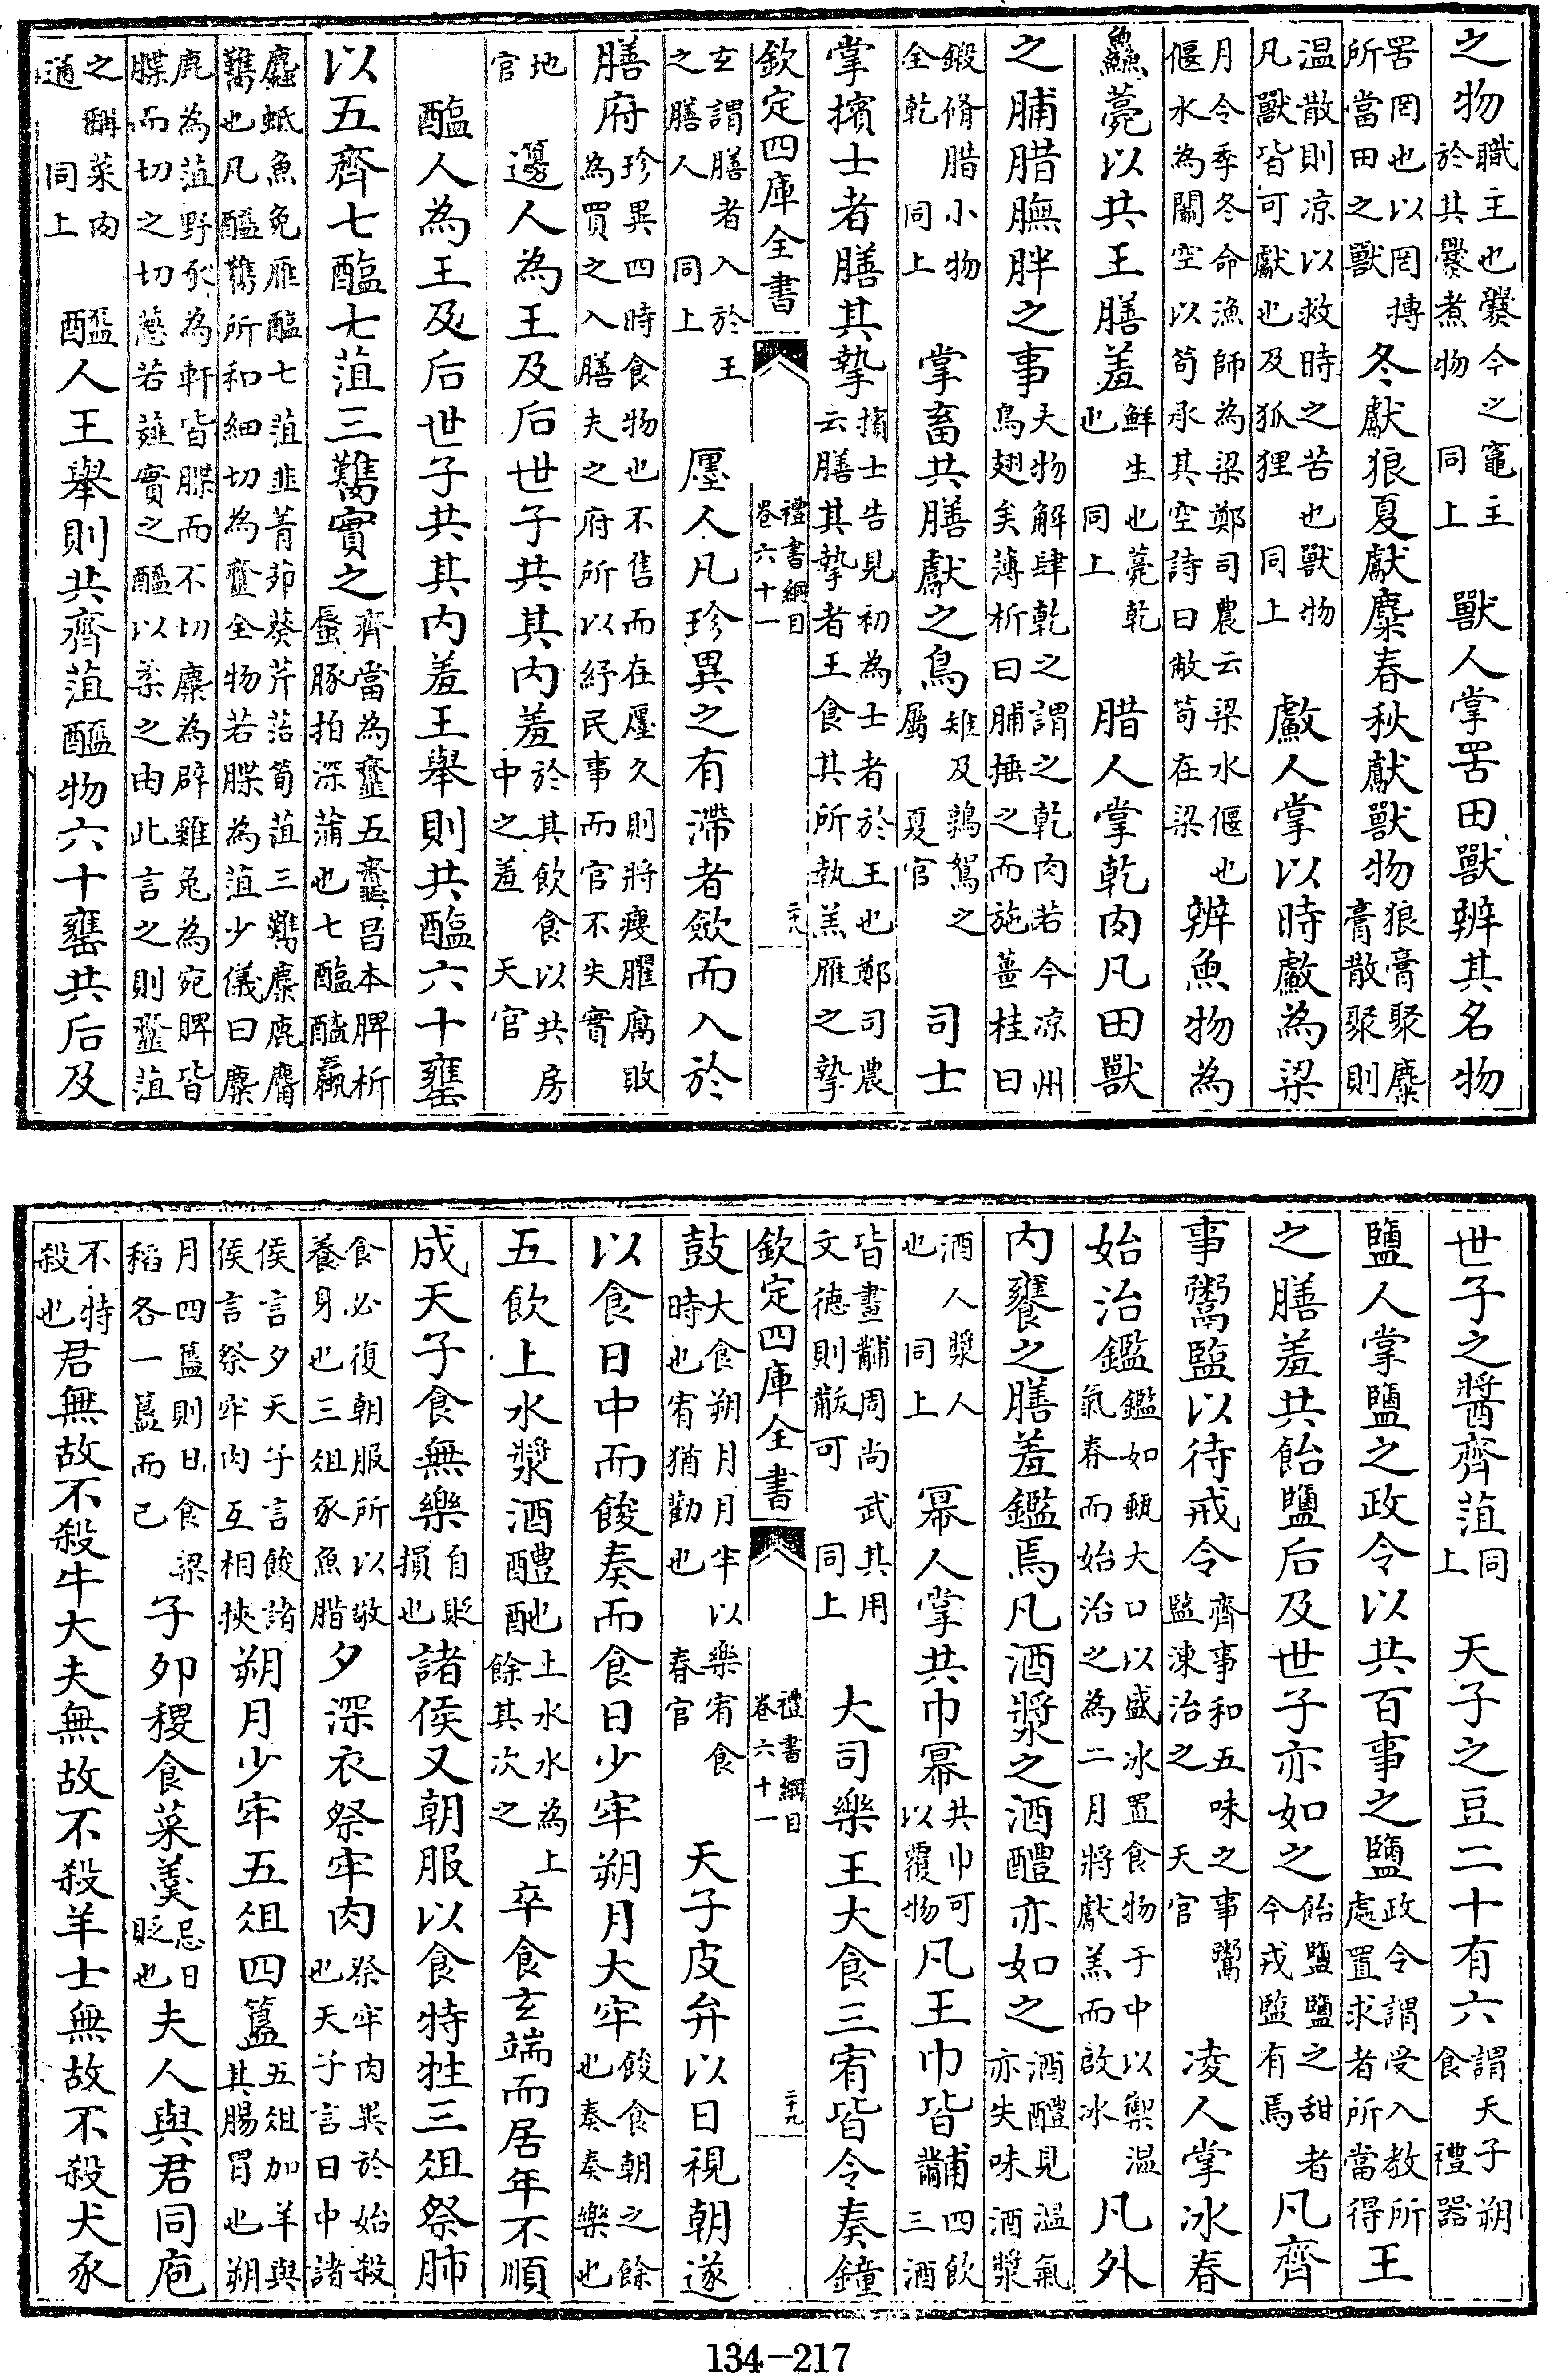 之物職主也爨今之竈主於其爨煮物同上　獸人掌罟田獸辨其名物
罟罔也以罔搏所當田之獸冬獻狼夏獻麋春秋獻獸物狼膏聚麋膏散聚則
温散則凉以救時之苦也獸物凡獸皆可獻也及狐狸同上　䱷人掌以時䱷為梁
月令季冬命漁師為梁鄭司農云梁水偃也偃水為關空以笱承其空詩曰敝笱在梁辨魚物為
鱻薧以共王膳羞鮮生也薧乾也同上　腊人掌乾肉凡田獸
之脯腊膴胖之事大物解肆乾之謂之乾肉若今凉州鳥翅矣薄析曰脯捶之而施薑桂曰
鍛脩腊小物全乾同上　掌畜共膳獻之鳥雉及鶉鴽之屬夏官　司士
掌擯士者膳其摯擯士告見初為士者於王也鄭司農云膳其摯者王食其所執羔雁之摯
欽定四庫全書　禮書綱目卷六十一　二十八
玄謂膳者入於王之膳人同上　廛人凡珍異之有滯者歛而入於
膳府珍異四時食物也不售而在廛久則將瘦臞腐敗為買之入膳夫之府所以紓民事而官不失實
地官　籩人為王及后世子共其内羞於其飲食以共房中之羞天官
醢人為王及后世子共其内羞王舉則共醢六十罋
以五齊七醢七菹三臡實之齊當為韲五韲昌本脾析蜃豚拍深蒲也七醢醓蠃
蠯蚳魚兔雁醢七菹韭菁茆葵芹菭筍菹三臡麋鹿麕臡也凡醢臡所和細切為韲全物若䐑為菹少儀曰麋
鹿為菹野豕為軒皆䐑而不切麋為辟雞兔為宛脾皆䐑而切之切葱若薤實之醯以柔之由此言之則韲菹
之稱菜肉通同上　醯人王舉則共齊菹醯物六十罋共后及
世子之醬齊菹同上　天子之豆二十有六謂天子朔食禮器
鹽人掌鹽之政令以共百事之鹽政令謂受入教所處置求者所當得王
之膳羞共飴鹽后及世子亦如之飴鹽鹽之甜者今戎鹽有焉凡齊
事鬻盬以待戒令齊事和五味之事鬻盬湅治之天官　凌人掌冰春
始治鑑鑑如甀大口以盛冰置食物于中以禦温氣春而始治之為二月將獻羔而啟冰凡外
内饔之膳羞鑑焉凡酒漿之酒醴亦如之酒醴見温氣亦失味酒漿
酒人漿人也同上　冪人掌共巾冪共巾可以覆物凡王巾皆黼四飲三酒
皆畫黼周尚武其用文德則黻可同上　大司樂王大食三宥皆令奏鐘
欽定四庫全書　禮書綱目卷六十一　二十九
鼓大食朔月月半以樂宥食時也宥猶勸也春官　天子皮弁以日視朝遂
以食日中而餕奏而食日少牢朔月大牢餕食朝之餘也奏奏樂也
五飲上水漿酒醴酏上水水為上餘其次之卒食玄端而居年不順
成天子食無樂自貶損也諸侯又朝服以食特牲三俎祭肺
食必復朝服所以敬養身也三俎豕魚腊夕深衣祭牢肉祭牢肉異於始殺也天子言日中諸
侯言夕天子言餕諸侯言祭牢肉互相挾朔月少牢五俎四簋五俎加羊與其腸胃也朔
月四簋則日食粱稻各一簋而已子夘稷食菜羮忌日貶也夫人與君同庖
不特殺也君無故不殺牛大夫無故不殺羊士無故不殺犬豕
134—217